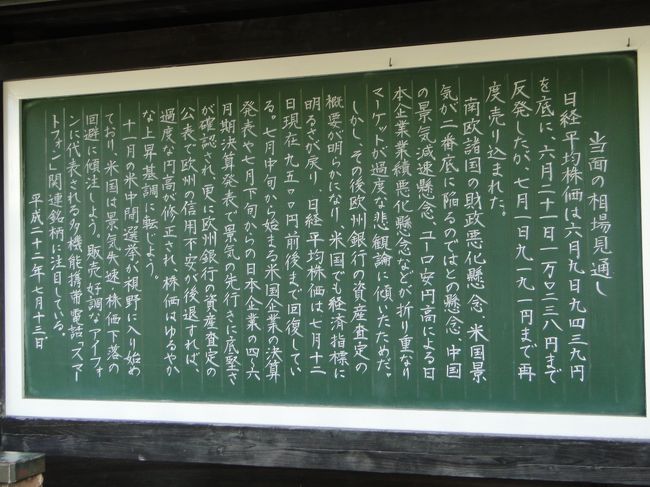 当面の相場見通し
日経平均株価は六月九日九四三九円
を底に、六月二十一日一万〇二三八円まで
反発したが、七月一日九一九一円まで再
度売り込まれた。
南欧諸国の財政悪化懸念、米国景
気が二番底に陥るのではとの懸念、中国
の景気減速懸念、ユーロ安円高による日
本企業業績悪化懸念などが折り重なり
マーケットが過度な悲観論に傾いたためだ。
しかし、その後欧州銀行の資産査定の
概要が明らかになり、米国でも経済指標に
明るさが戻り、日経平均株価は七月十二
日現在九五〇〇円前後まで回復してい
る。七月中旬から始まる米国企業の決算
発表や七月下旬からの日本企業の四〜六
月期決算発表で景気の先行きに底堅さ
が確認され、更に欧州銀行の資産査定の
公表で欧州の信用不安が後退すれば、
過度な円高が修正され、株価はゆるやか
な上昇基調に転じよう。
十一月の米中間選挙が視野に入り始め
ており、米国は景気失速、株価下落の
回避に傾注しよう。販売好調な「アイフォ
ン」に代表される多機能携帯電話「スマー
トフォン」関連銘柄に注目している。
平成二十二年七月十三日